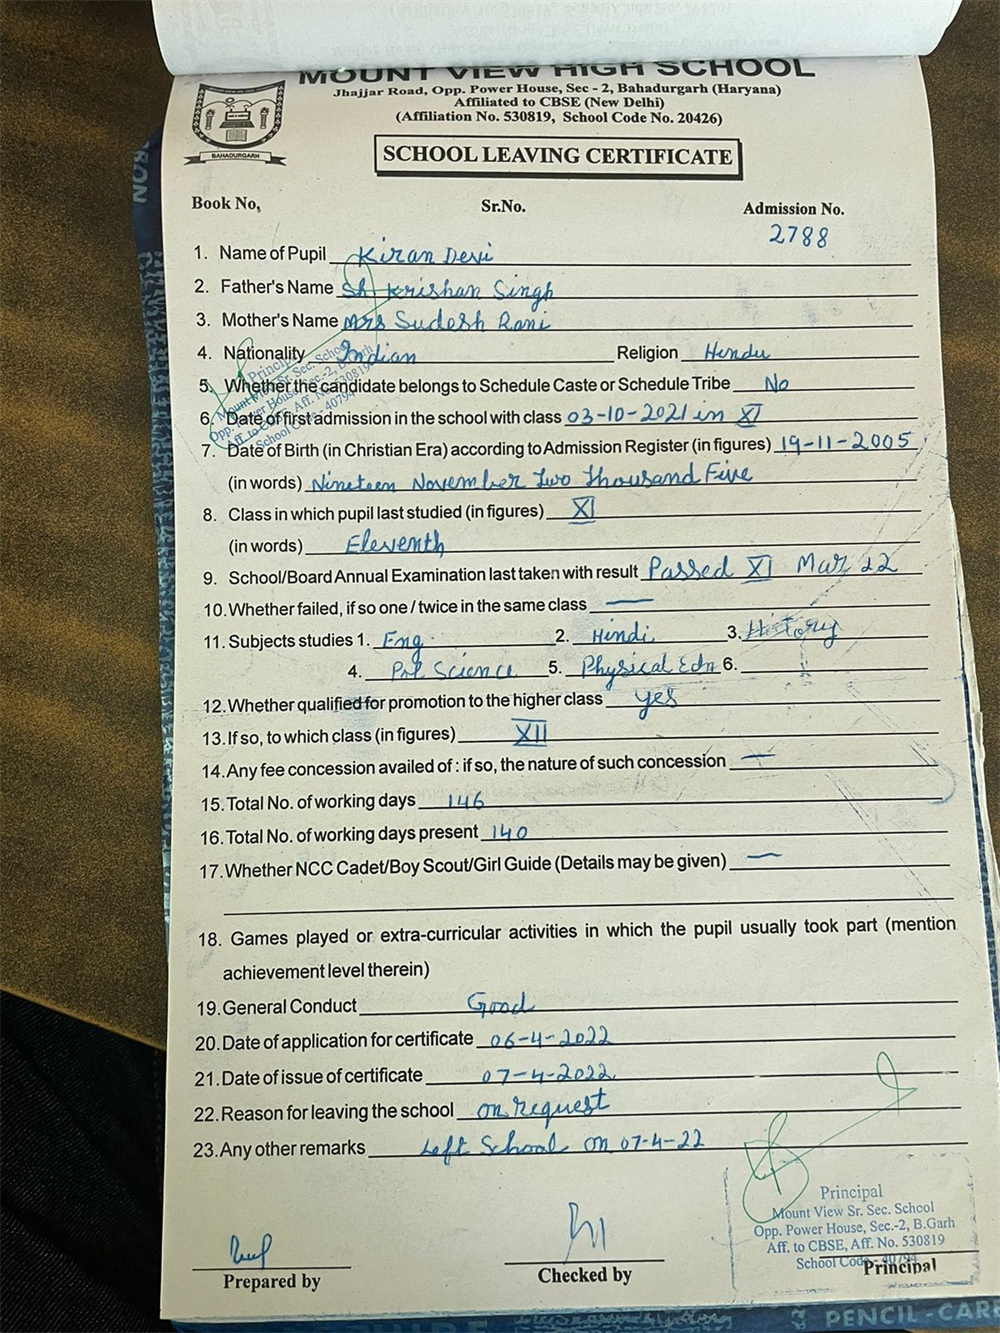 MOUNT VIEW HIGH SCHOOL
Jhajjar Road, Opp. Power House, Sec - 2, Bahadurgarh (Haryana)
Affiliated to CBSE (New Delhi)
(Affiliation No. 530819, School Code No. 20426)
BAHADURGARH
SCHOOL LEAVING CERTIFICATE
Book No, Sr.No. Admission No.
2788
1. Name of Pupil Kiran Devi
2. Father's Name Sh Krishan Singh
3. Mother's Name Mrs Sudesh Rani
4. Nationality Indian Religion Hindu
Principal
Mount View Sr. Sec. School
Opp. Power House, Sec.-2, B.Garh
Aff. to CBSE, Aff. No. 530819
School Code - 40794
5. Whether the candidate belongs to Schedule Caste or Schedule Tribe No
6. Date of first admission in the school with class 03-10-2021 in XI
7. Date of Birth (in Christian Era) according to Admission Register (in figures) 19-11-2005
(in words) Nineteen November Two Thousand Five
8. Class in which pupil last studied (in figures) XI
(in words) Eleventh
9. School/Board Annual Examination last taken with result Passed XI Mar 22
10. Whether failed, if so one / twice in the same class —
11. Subjects studies 1. Eng. 2. Hindi 3. History
4. Pol Science 5. Physical Edn 6.
12. Whether qualified for promotion to the higher class yes
13. If so, to which class (in figures) XII
14. Any fee concession availed of : if so, the nature of such concession —
15. Total No. of working days 146
16. Total No. of working days present 140
17. Whether NCC Cadet/Boy Scout/Girl Guide (Details may be given) —
18. Games played or extra-curricular activities in which the pupil usually took part (mention
achievement level therein)
19. General Conduct Good
20. Date of application for certificate 06-4-2022
21. Date of issue of certificate 07-4-2022
22. Reason for leaving the school on request
23. Any other remarks Left School on 07-4-22
Principal
Mount View Sr. Sec. School
Opp. Power House, Sec.-2, B.Garh
Aff. to CBSE, Aff. No. 530819
School Code - 40794
Prepared by Checked by Principal
PENCIL-CAR